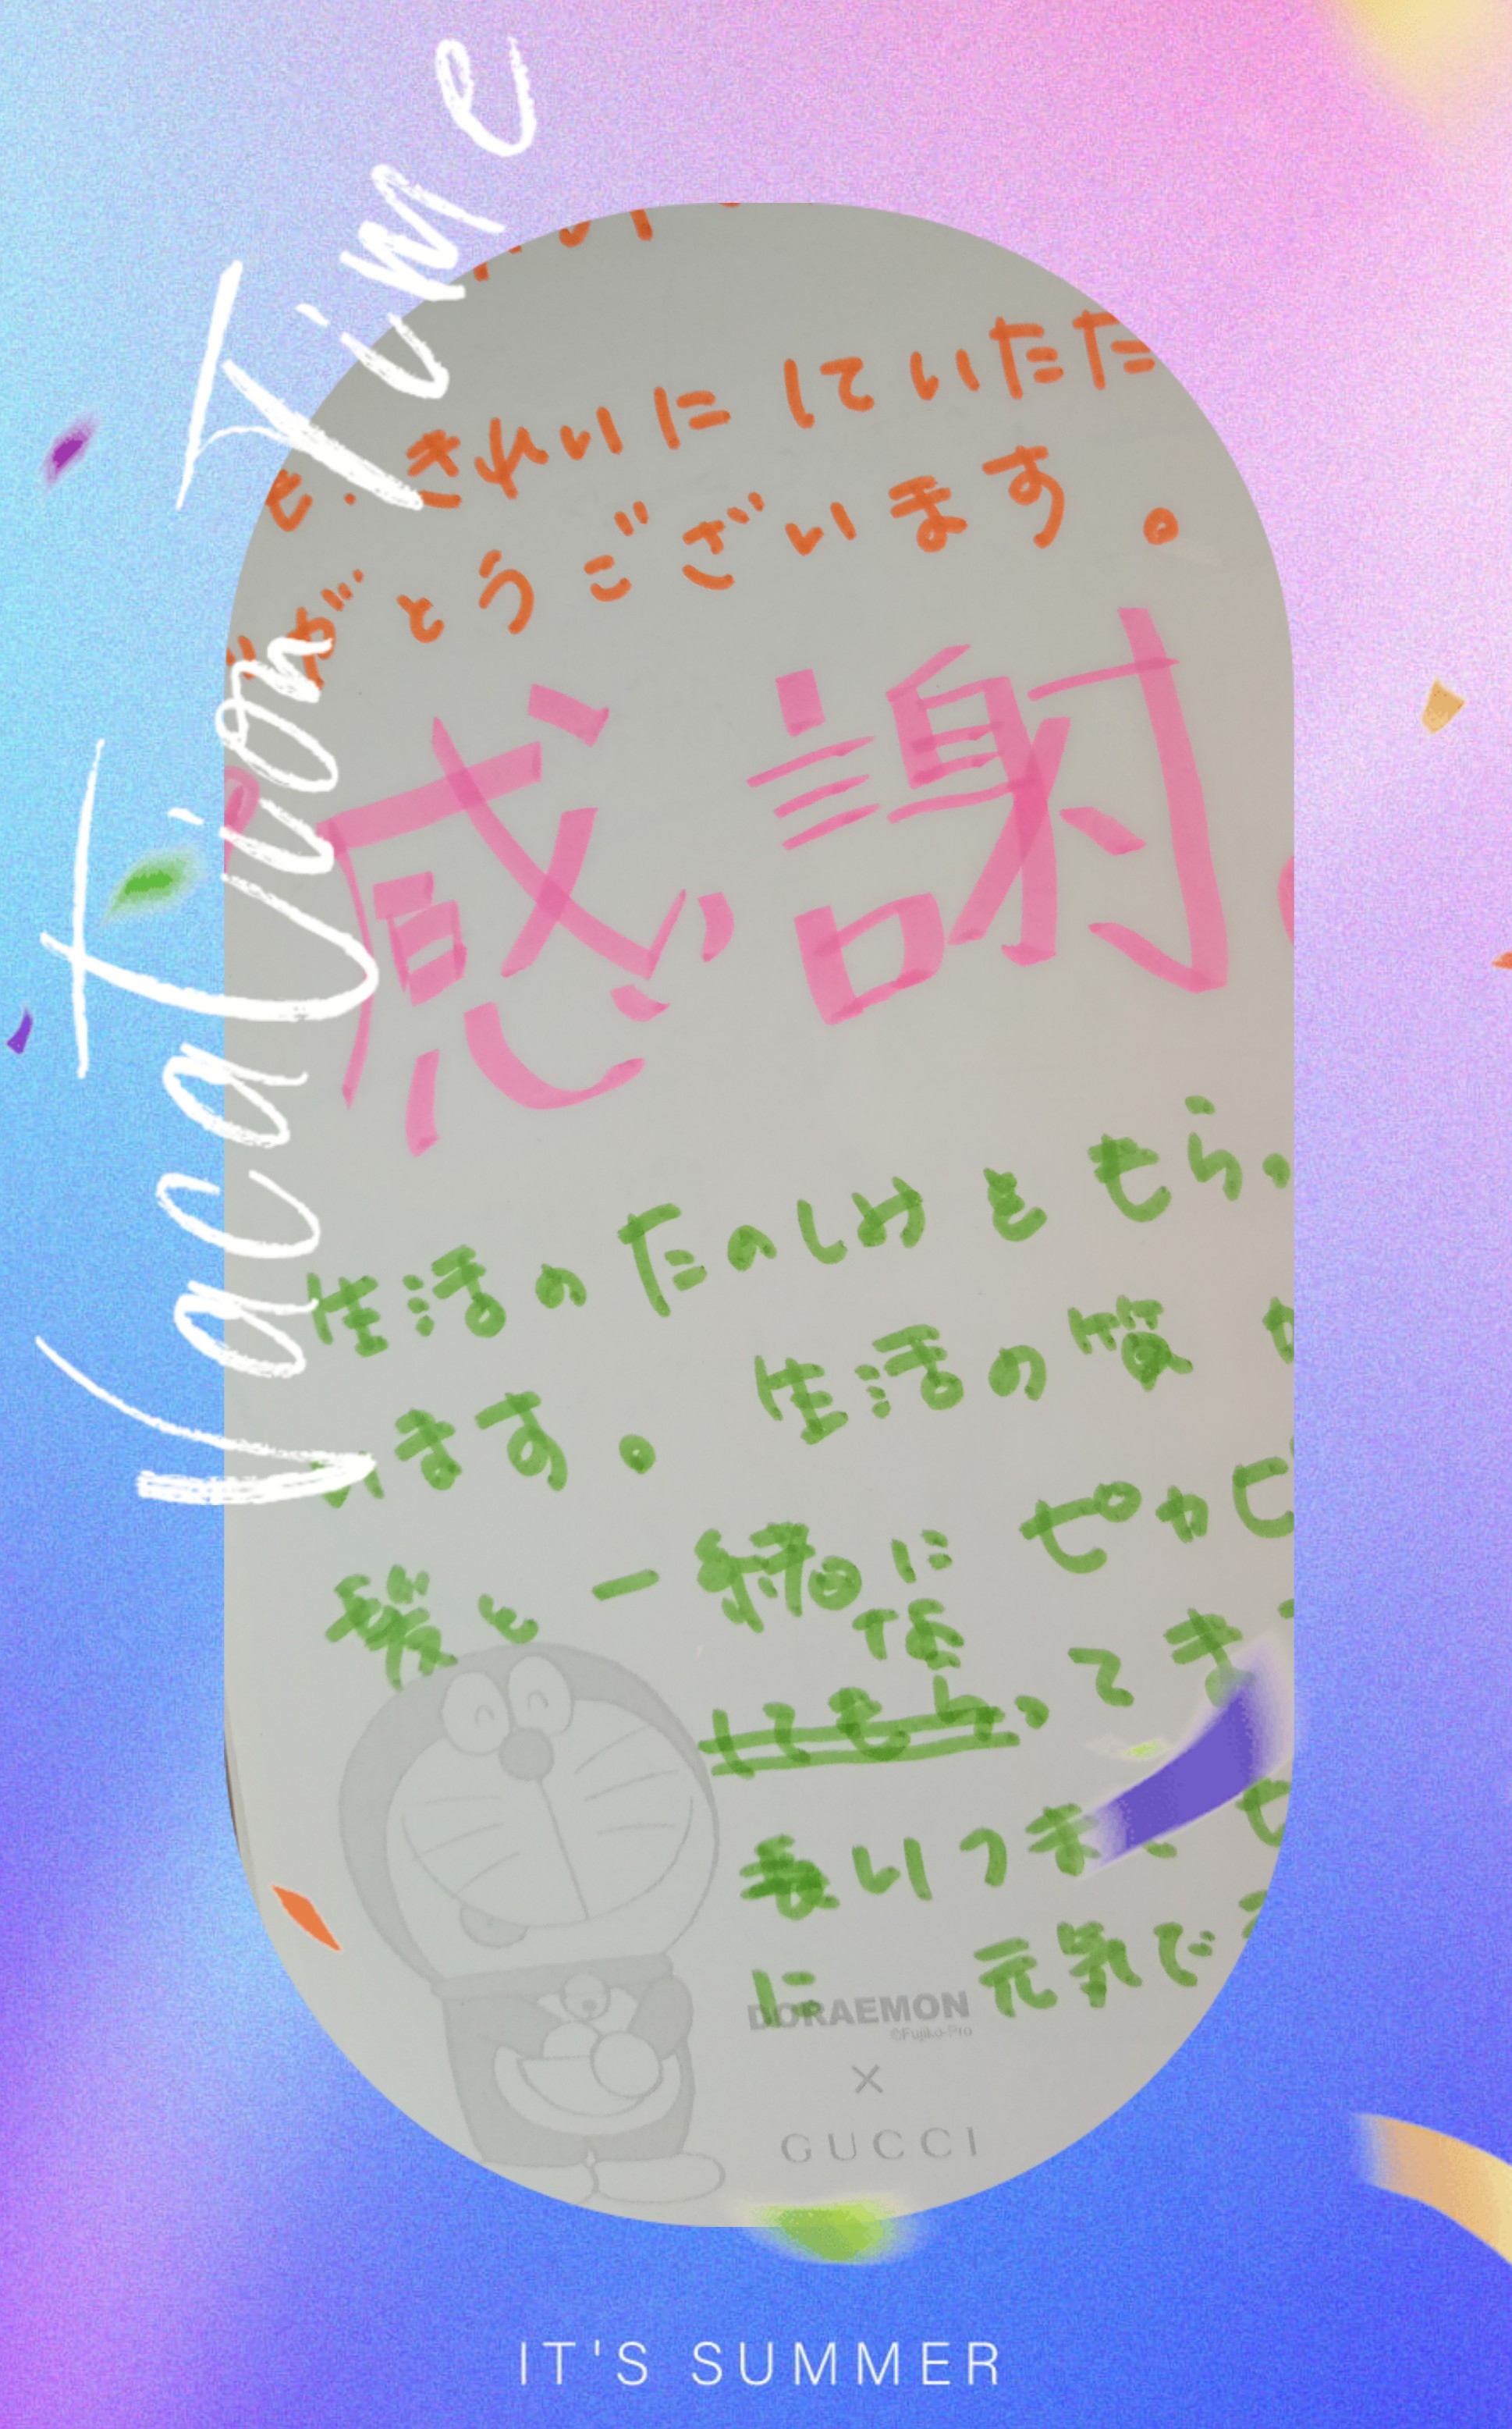 Vacation Time
も、きれいにしていただ
がとうございます。
感謝
生活のたのしみをもらっ
います。 生活の質が
髪も一緒に ピカピ
な
してもらってき
長いつまでも
に 元気で
DORAEMON
©Fujiko-Pro
×
GUCCI
IT'S SUMMER